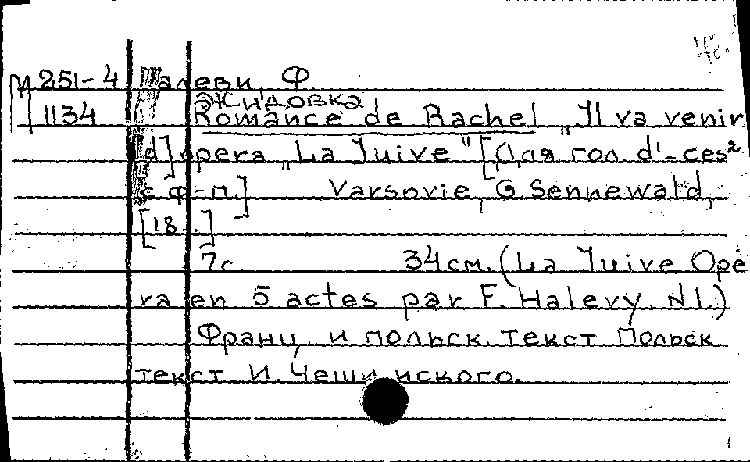 М 251-4 Галеви, Ф
Жидовка
1134 Romance de Rachel „Il va venir
[d]opera „La Juive" [Для гол. d'-ces²
с ф-п.] Varsovie, G Sennewald,
[18 .]
7с 34см. (La Juive Opé
ra en 5 actes par F. Halevy. N1.)
Франц, и польск. текст Польск
текст И. Чеши нского.